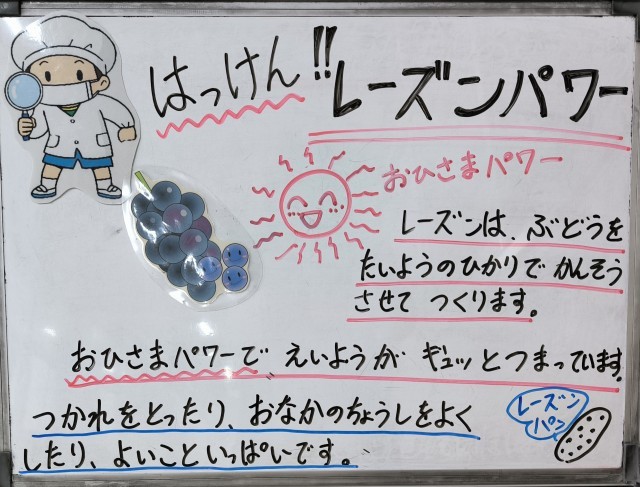 はっけん!! レーズンパワー
おひさまパワー
レーズンは、ぶどうを
たいようのひかりで かんそう
させて つくります。
おひさまパワーで えいようが ギュッとつまっています。
つかれをとったり、おなかのちょうしをよく
したり、よいこといっぱいです。
レーズン
パン